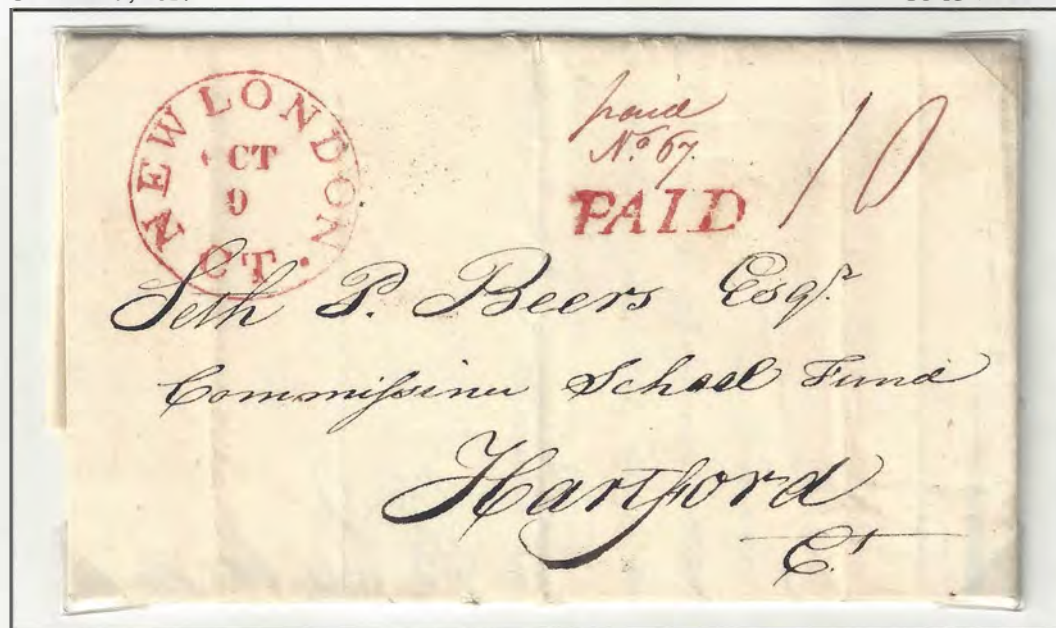 NEW LONDON
CT
9
CT.
paid
No 67.
PAID
10
Seth P. Beers Esqr.
Commissiner School Fund
Hartford
Ct